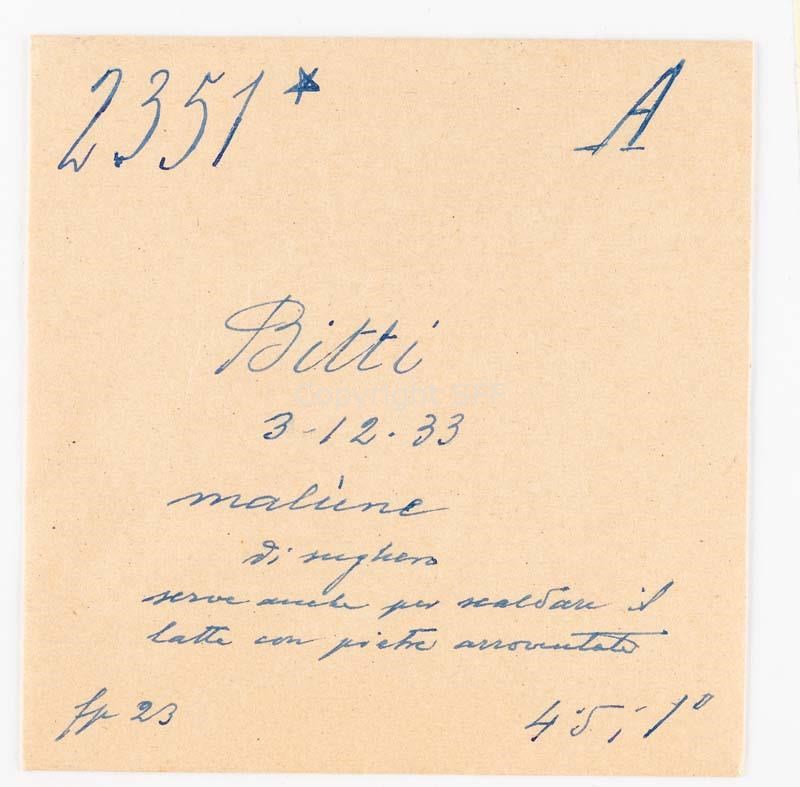 2351* A
Bitti
3-12.33
malùne
di sughero
serve anche per scaldare il
latte con pietre arroventate
fp 23